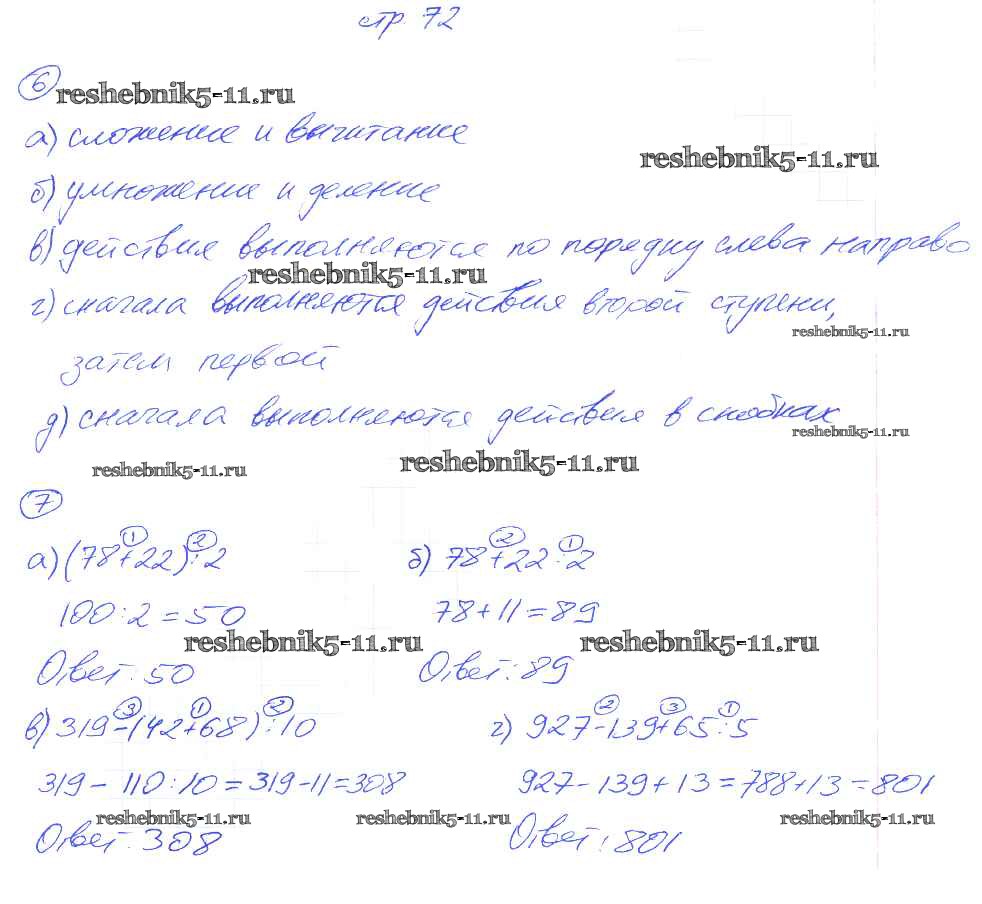 стр. 72
6
reshebnik5-11.ru
а) сложение и вычитание
reshebnik5-11.ru
б) умножение и деление
в) действия выполняются по порядку слева направо
reshebnik5-11.ru
г) сначала выполняются действия второй ступени,
reshebnik5-11.ru
затем первой
д) сначала выполняются действия в скобках
reshebnik5-11.ru
reshebnik5-11.ru reshebnik5-11.ru
7
1 2 2 1
а) (78+22):2 б) 78+22:2
100:2=50 78+11=89
reshebnik5-11.ru reshebnik5-11.ru
Ответ: 50 Ответ: 89
3 1 2 2 3 1
в) 319-(42+68):10 г) 927-139+65:5
319-110:10=319-11=308 927-139+13=788+13=801
reshebnik5-11.ru reshebnik5-11.ru reshebnik5-11.ru
Ответ: 308 Ответ: 801